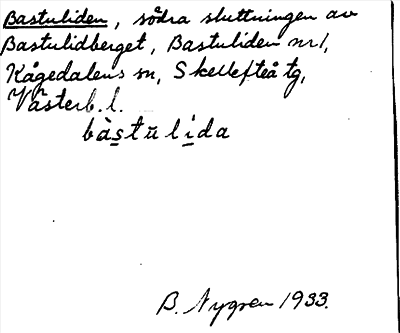 Bastuliden, södra sluttningen av
Bastulidberget, Bastuliden nr 1,
Kågedalens sn, Skellefteå tg,
Västerb. l.
bàstūlida
B. Nygren 1933.